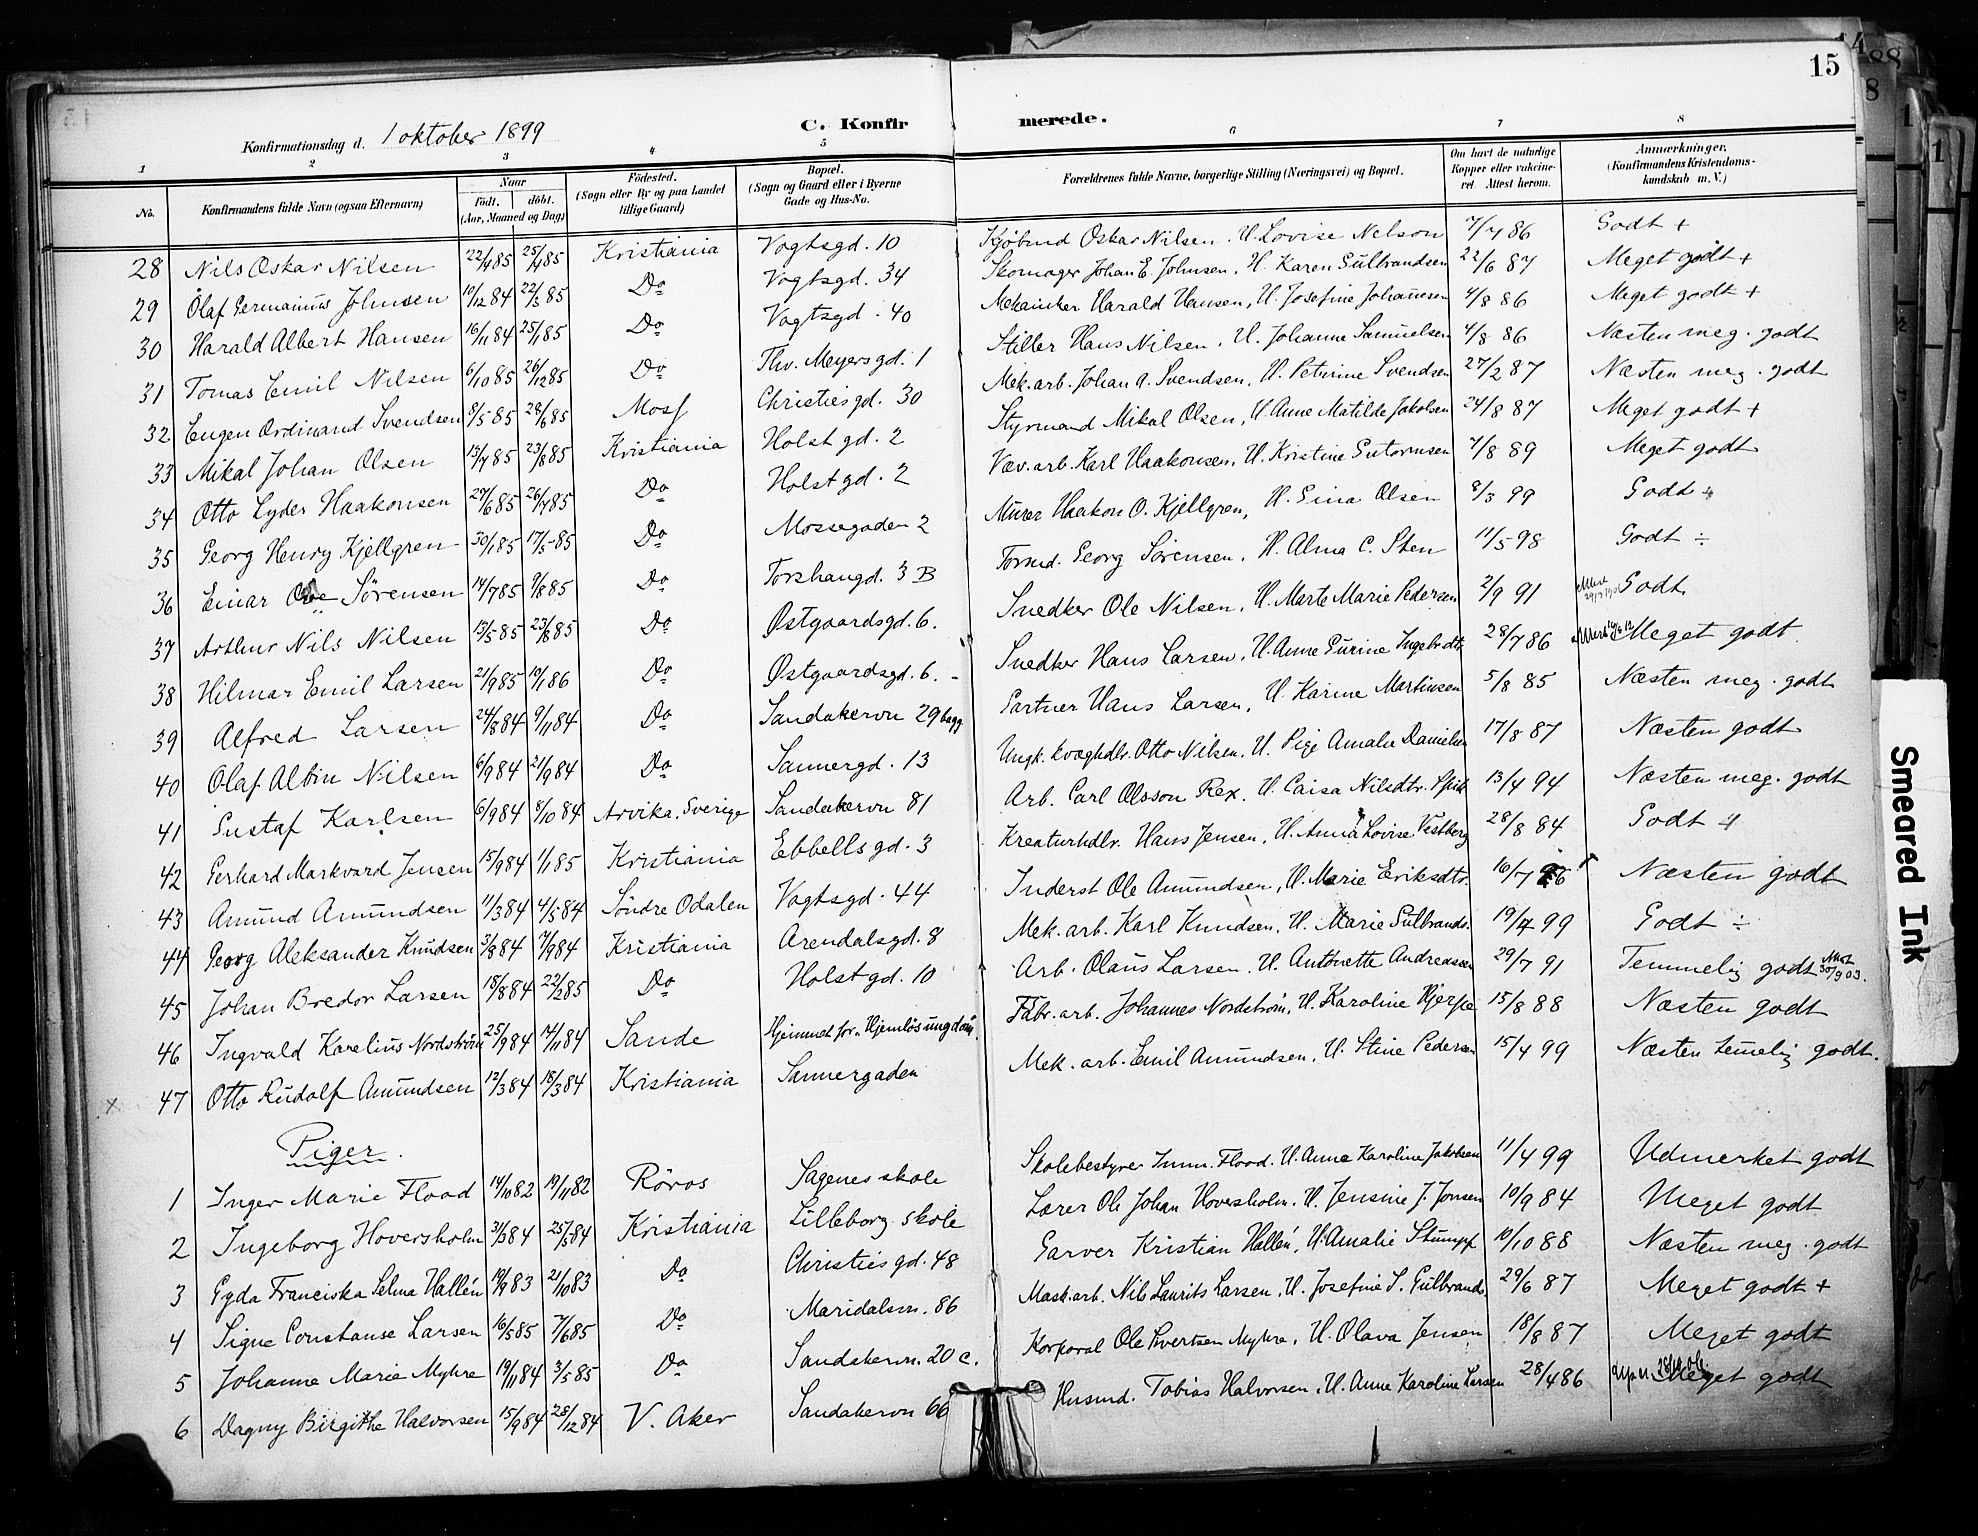 15
Konfirmationsdag d. 1 oktober 1899
C. Konfirmerede.
1 2 3 4 5 6 7 8
No. Konfirmandens fulde Navn (ogsaa Efternavn) Naar Födt. döbt. (Aar, Maaned og Dag) Födested. (Sogn eller By og paa Landet tillige Gaard) Bopæl. (Sogn og Gaard eller i Byerne Gade og Hus-No. Forældrenes fulde Navne, borgerlige Stilling (Næringsvei) og Bopæl. Om havt de naturlige Kopper eller vakcineret. Attest herom. Anmærkninger. (Konfirmandens Kristendomskundskab m. V.)
28 Nils Oskar Nilsen 22/4 85 25/4 85 Kristiania Vogtsgd. 10 Kjøbmd Oskar Nilsen. H. Lovise Nelson 7/7 86 Godt +
29 Olaf Germanius Johnsen 10/12 84 22/3 85 Do Vogtsgd. 34 Skomager Johan E. Johnsen, H. Karen Gulbrandsen 22/6 87 Meget godt +
30 Harald Albert Hansen 16/11 84 25/1 85 Do Vogtsgd. 40 Mekaniker Harald Hansen, H. Josefine Johannesen 4/8 86 Meget godt +
31 Tomas Emil Nilsen 6/10 85 26/12 85 Do Thv. Meyersgd. 1 Stiller Hans Nilsen. H. Johanne Samuelsen 4/8 86 Næsten meg. godt
32 Eugen Ordinand Svendsen 9/5 85 28/6 85 Moss Christiesgd. 30 Mek. arb. Johan A. Svendsen, H. Petrine Svendsen 27/2 87 Næsten meg. godt
33 Mikal Johan Olsen 13/7 85 23/8 85 Kristiania Holstgd. 2 Styrmand Mikal Olsen, H. Anne Matilde Jakobsen 24/8 87 Meget godt +
34 Otto Lyder Haakonsen 27/6 85 26/7 85 Do Holstgd. 2 Væv. arb. Karl Haakonsen, H. Kristine Gutormsen 7/8 89 Meget godt
35 Georg Henry Kjellgren 30/1 85 17/5 85 Do Mossegaden 2 Murer Haakon O. Kjellgren, H. Gina Olsen 8/3 99 Godt +
36 Einar Ove Sörensen 14/7 85 9/8 85 Do Torshaugd. 3 B Georg Sörensen, H. Alma C. Sten 11/5 98 Godt ÷
37 Arthur Nils Nilsen 13/5 85 23/8 85 Do Østgaardsgd. 6. Snedker Ole Nilsen, H. Marte Marie Pedersen 2/9 91 Godt
38 Hilmar Emil Larsen 21/9 85 10/1 86 Do Østgaardsgd. 6. Snedker Hans Larsen, H. Anne Gurine Ingebrdtr 28/7 86 Meget godt.
39 Alfred Larsen 24/8 84 9/11 84 Do Sandakervn 29 bagg Gartner Hans Larsen, H. Karine Martinsen 5/8 85 Næsten meg. godt
40 Olaf Albin Nilsen 6/9 84 21/9 84 Do Sannergd. 13 Ungk. kvæghdlr. Otto Nilsen. H. Pige Amalie Danielsen 17/8 87 Næsten godt
41 Gustaf Karlsen 6/9 84 8/10 84 Arvika. Sverige Sandakervn 81 Arb. Carl Olsson Rex. H. Caisa Nilsdtr. 13/4 94 Næsten meg. godt
42 Gerhard Markvard Jensen 15/9 84 1/1 85 Kristiania Ebbellsgd. 3 Kreaturhdlr. Hans Jensen, H. Anna Lovise Vestberg 28/8 84 Godt +
43 Amund Amundsen 11/3 84 4/5 84 Söndre Odalen Vogtsgd. 44 Inderst Ole Amundsen, H. Marie Eriksdtr. 16/7 Næsten godt
44 Georg Aleksander Knudsen 3/8 84 7/9 84 Kristiania Arendalsgd. 8 Mek. arb. Karl Knudsen, H. Marie Gulbrands. 19/4 99 Godt ÷
45 Johan Bredor Larsen 18/8 84 22/2 85 Do Holstgd. 10 Arb. Olaus Larsen. H. Antonette Andreassen 29/7 91 Temmelig godt 30/9 03.
46 Ingvald Karelius Nordström 25/9 84 14/11 84 Sande Hjemmet for Hjemløs ungdom Fabr. arb. Johannes Nordström, H. Karoline Hjerpe 15/8 88 Næsten godt
x 47 Otto Rudolf Amundsen 12/3 84 18/3 84 Kristiania Sannergaden Mek. arb. Emil Amundsen, H. Stine Pedersen 15/4 99 Næsten temelig godt.
Piger.
1 Inger Marie Flood 14/10 82 19/11 82 Röros Sagenes skole Skolebestyrer Imm. Flood. H. Anna Karoline Jakobsen 11/4 99 Udmerket godt
2 Ingeborg Hoversholm 31/3 84 25/5 84 Kristiania Lilleborg skole Lærer Ole Johan Hoversholm. H. Jensine J. Jonsen 10/9 84 Meget godt
3 Gyda Franciska Selma Hallén 19/9 83 21/10 83 Do Christiesgd. 48 Garver Kristian Hallén, H. Amalie Stumpf 10/10 88 Næsten meg. godt
4 Signe Constanse Larsen 16/5 85 7/6 85 Do Maridalsvn. 86 Mask. arb. Nils Laurits Larsen, H. Josefine S. Gulbrands 29/6 87 Meget godt +
5 Johanne Marie Myhre 19/11 84 3/5 85 Do Sandakervn. 20 c. Korporal Ole Evertsen Myhre, H. Olava Jensen 18/8 87 Meget godt
6 Dagny Birgithe Halvorsen 15/9 84 28/12 84 V. Aker Sandakervn 66 Husmd. Tobias Halvorsen, H. Anne Karoline Larsen 28/4 86 Meget godt
Smeared Ink